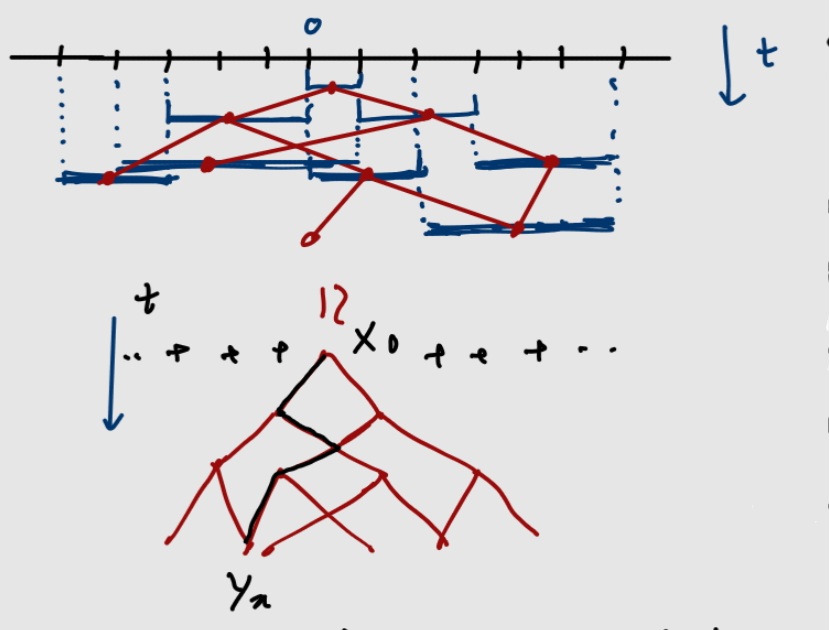 0
t
t
12
.. + + + X0 + + + ..
Yn